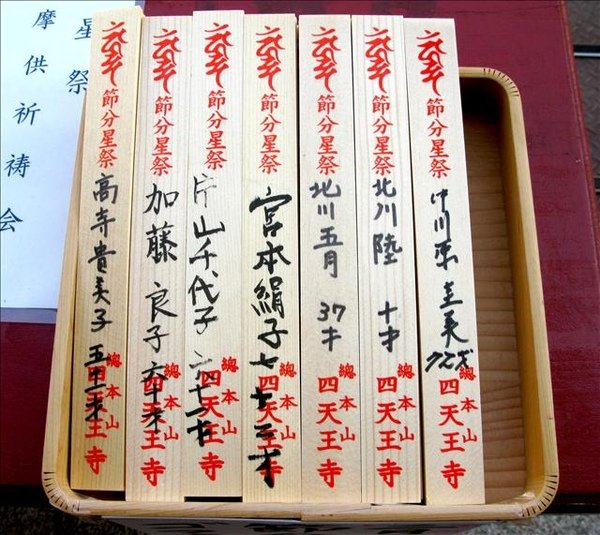 節分星祭
中川 圭美
總本山
四天王寺
節分星祭
北川 陸 十才
總本山
四天王寺
節分星祭
北川五月 37才
總本山
四天王寺
節分星祭
宮本絹子 七十二才
總本山
四天王寺
節分星祭
片山千代子 六十一才
總本山
四天王寺
節分星祭
加藤良子 六十才
總本山
四天王寺
節分星祭
高寺貴美子
總本山
四天王寺
星祭
摩供祈祷会